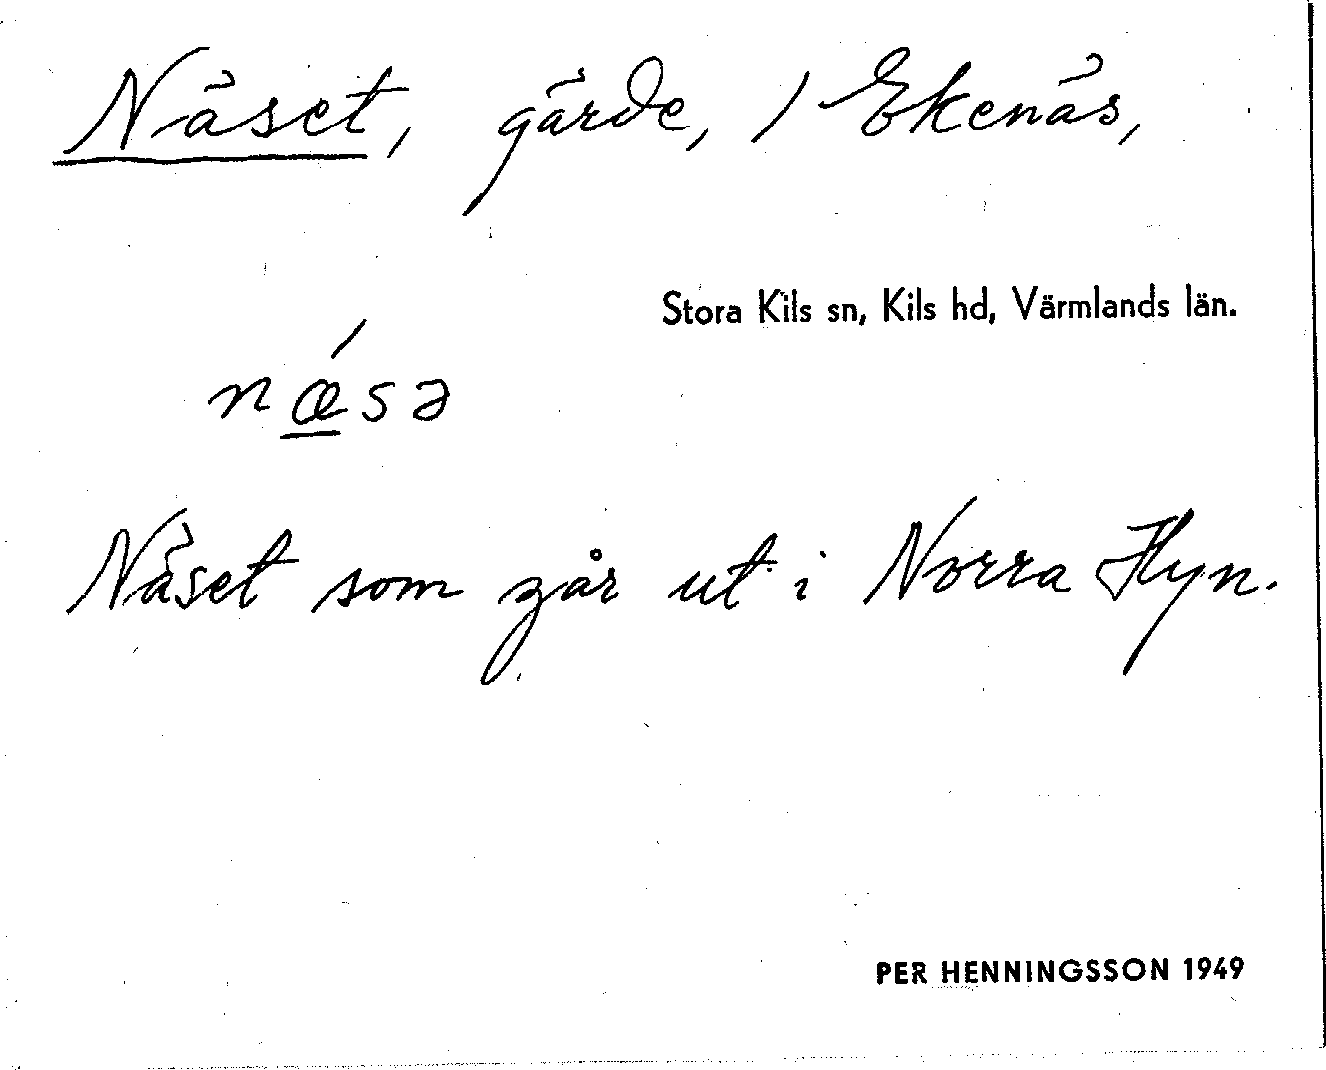 Näset, gärde, / Ekenäs,
Stora Kils sn, Kils hd, Värmlands län.
nǽ̱sə
Näset som går ut i Norra Hyn.
PER HENNINGSSON 1949